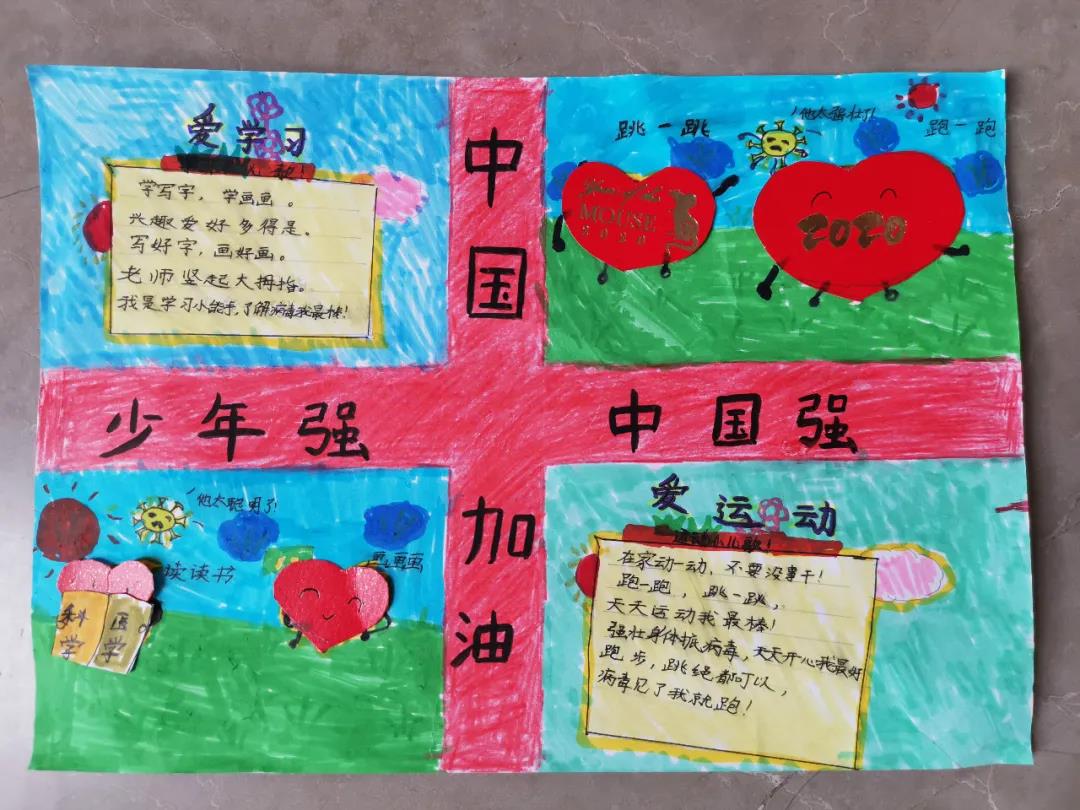 爱学习
学写字，学画画。
兴趣爱好多得是。
写好字，画好画。
老师竖起大拇指。
我是学习小能手，了解病毒我最棒！
中国加油
跳一跳
他太强壮了！
跑一跑
MOUSE
2020
2020
少年强 中国强
他太聪明了！
读读书
画画
科学
医学
爱运动
在家动一动，不要没事干！
跑一跑，跳一跳，
天天运动我最棒！
强壮身体抵病毒，天天开心我最好
跑步，跳绳都可以，
病毒见了我就跑！